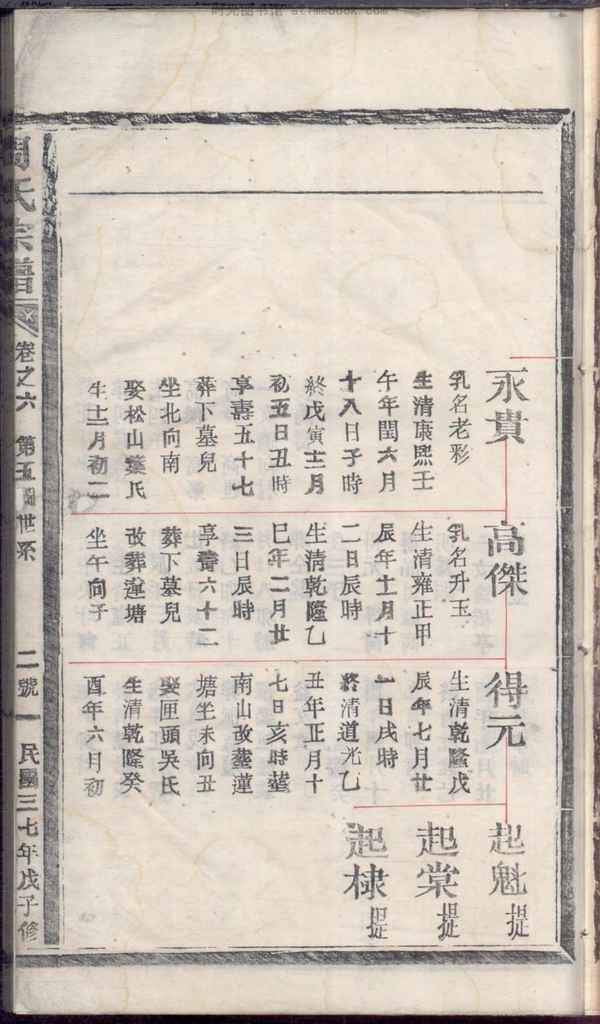 時光图书馆 atimebook.com
永貴
乳名老彩
生清康熙壬
午年閏六月
十八日子時
終戊寅十二月
初五日丑時
享壽五十七
葬下墓兒
坐北向南
娶松山葉氏
生十二月初二
高傑
乳名升玉
生清雍正甲
辰年十一月十
二日辰時
生清乾隆乙
巳年二月廿
三日辰時
享壽六十二
葬下墓兒
改葬蓮塘
坐午向子
得元
生清乾隆戊
辰年七月廿
一日戌時
終清道光乙
丑年正月十
七日亥時塟
南山改塟蓮
塘坐未向丑
娶匣頭吳氏
生清乾隆癸
酉年六月初
起魁 提
起棠 提
起棣 提
周氏宗譜 卷之六 第五 世系 二號 民國三七年戊子修